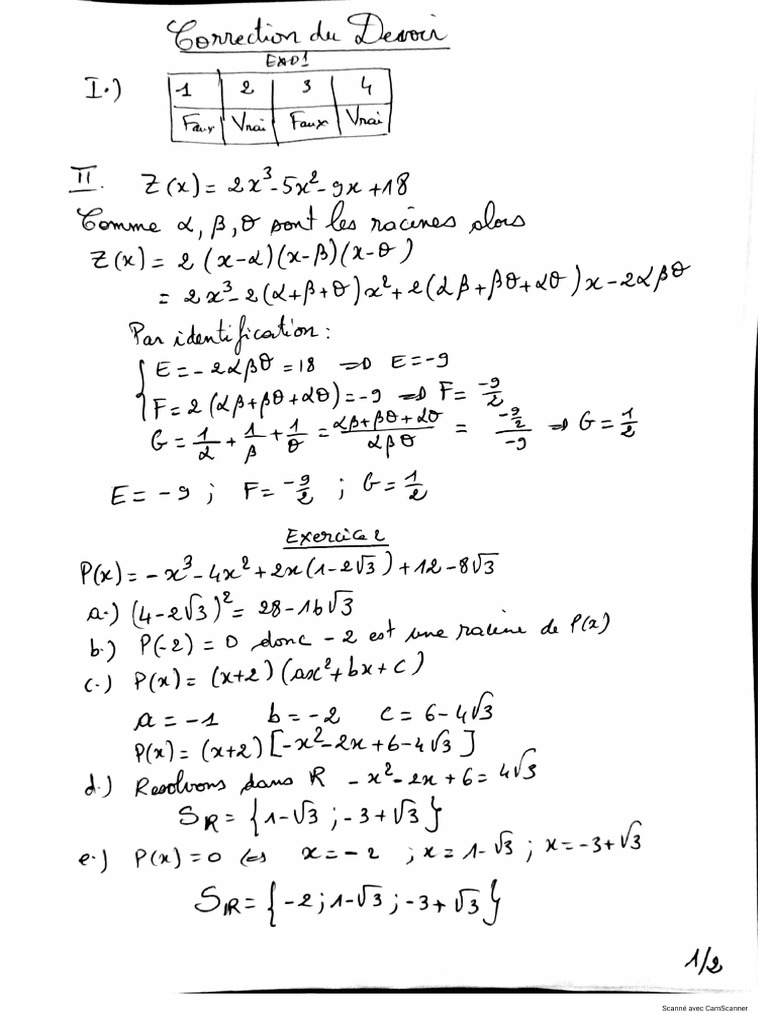 Correction du Devoir
EXO1
I.)
1 2 3 4
Faux Vrai Faux Vrai
II. Z(x) = 2x³-5x²-9x+18
Comme α, β, θ sont les racines alors
Z(x) = 2(x-α)(x-β)(x-θ)
= 2x³-2(α+β+θ)x²+2(αβ+βθ+αθ)x-2αβθ
Par identification:
E = -2αβθ = 18 ⇒ E = -9
F = 2(αβ+βθ+αθ) = -9 ⇒ F = -9/2
G = 1/α + 1/β + 1/θ = (αβ+βθ+αθ)/(αβθ) = (-9/2)/(-9) ⇒ G = 1/2
E = -9 ; F = -9/2 ; G = 1/2
Exercice 2
P(x) = -x³-4x²+2x(1-2√3)+12-8√3
a.) (4-2√3)² = 28-16√3
b.) P(-2) = 0 donc -2 est une racine de P(x)
c.) P(x) = (x+2)(ax²+bx+c)
a = -1 b = -2 c = 6-4√3
P(x) = (x+2)[-x²-2x+6-4√3]
d.) Resolvons dans R -x²-2x+6 = 4√3
SR = {1-√3 ; -3+√3}
e.) P(x) = 0 ⇔ x = -2 ; x = 1-√3 ; x = -3+√3
SR = {-2 ; 1-√3 ; -3+√3}
1/2
Scanné avec CamScanner